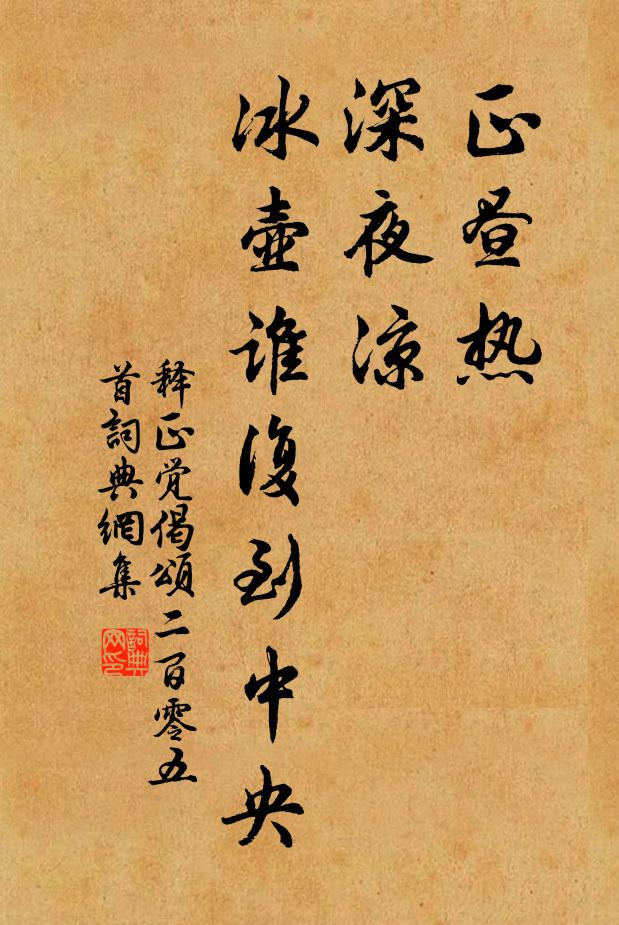 正昼热
深夜凉
冰壶谁復到中央
释正觉偈颂二百零五
首詞典網集
詞典
网印